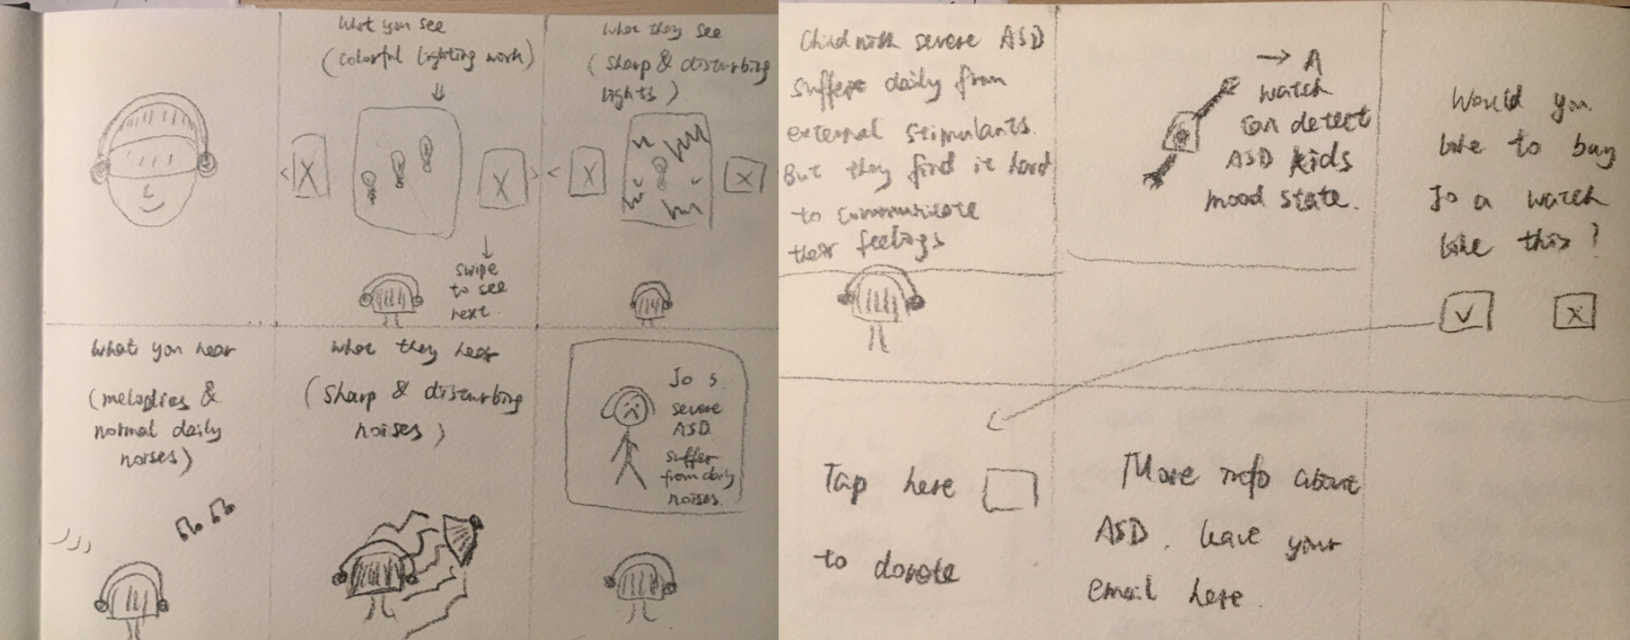 What you see
(colorful lighting work)
X
X
swipe
to see
next
What they see
(sharp & disturbing
lights)
X
X
What you hear
(melodies &
normal daily
noises)
What they hear
(sharp & disturbing
noises)
Jo s
severe
ASD
suffer
from daily
noises.
Child with severe ASD
suffers daily from
external stimulants.
But they find it hard
to communicate
their feelings
→ A
watch
can detect
ASD kids
mood state.
Would you
like to buy
Jo a watch
like this?
Tap here
to donate
More info about
ASD. leave your
email here.